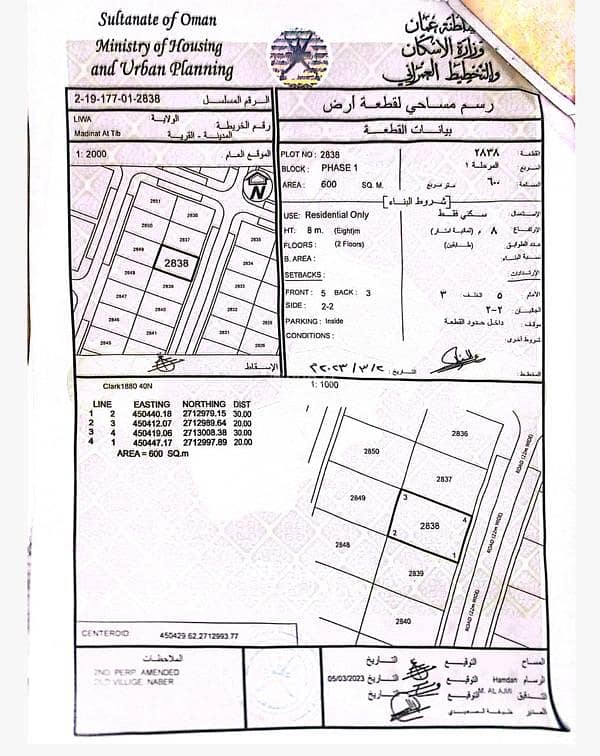 Sultanate of Oman
Ministry of Housing
and Urban Planning
سلطنة عمان
وزارة الإسكان
والتخطيط العمراني
2-19-177-01-2838 الرقم المسلسل
LIWA الولاية رقم الخريطة
Madinat At Tib المدينة - القرية
1: 2000 الموقع العام
N
2851
2850
2836
2849
2837
2835
2838
2834
2848
2839
2847
2846
2841
2845
الإسقاط
رسم مساحي لقطعة أرض
بيانات القطعة
PLOT NO : 2838 ٢٨٣٨ القطعة :
BLOCK : PHASE 1 المرحلة ١ المربع :
AREA : 600 SQ. M. متر مربع ٦٠٠ المساحة :
شروط البناء
USE: Residential Only سكني فقط الإستعمال
HT: 8 m. (Eight)m ٨ م (ثمانية امتار) الإرتفاع
FLOORS : (2 Floors) (طابقين) عدد الطوابق
B. AREA : نسبة البناء
SETBACKS : الإرتدادات
FRONT : 5 BACK : 3 الأمام ٥ الخلف ٣
SIDE : 2-2 الجانبان ٢-٢
PARKING : Inside داخل حدود القطعة موقف :
CONDITIONS : شروط أخرى
التاريخ : ٢٠٢٣/٣/٢ المخطط :
1: 1000
Clark1880 40N
LINE EASTING NORTHING DIST
1 2 450440.18 2712979.15 30.00
2 3 450412.07 2712989.64 20.00
3 4 450419.06 2713008.38 30.00
4 1 450447.17 2712997.89 20.00
AREA = 600 SQ.m
2836
2850
2837
2849
3
4
2838
2
1
2848
2839
2840
ROAD (22m WIDE)
ROAD (22m WIDE)
ROAD (22m WIDE)
CENTEROID: 450429.62,2712993.77
الملاحظات
2ND. PERP. AMENDED
OLD VILLIGE. NABER
المساح التوقيع التاريخ
الرسام Hamdan التوقيع التاريخ 05/03/2023
التدقيق M. AL AJMI التوقيع التاريخ